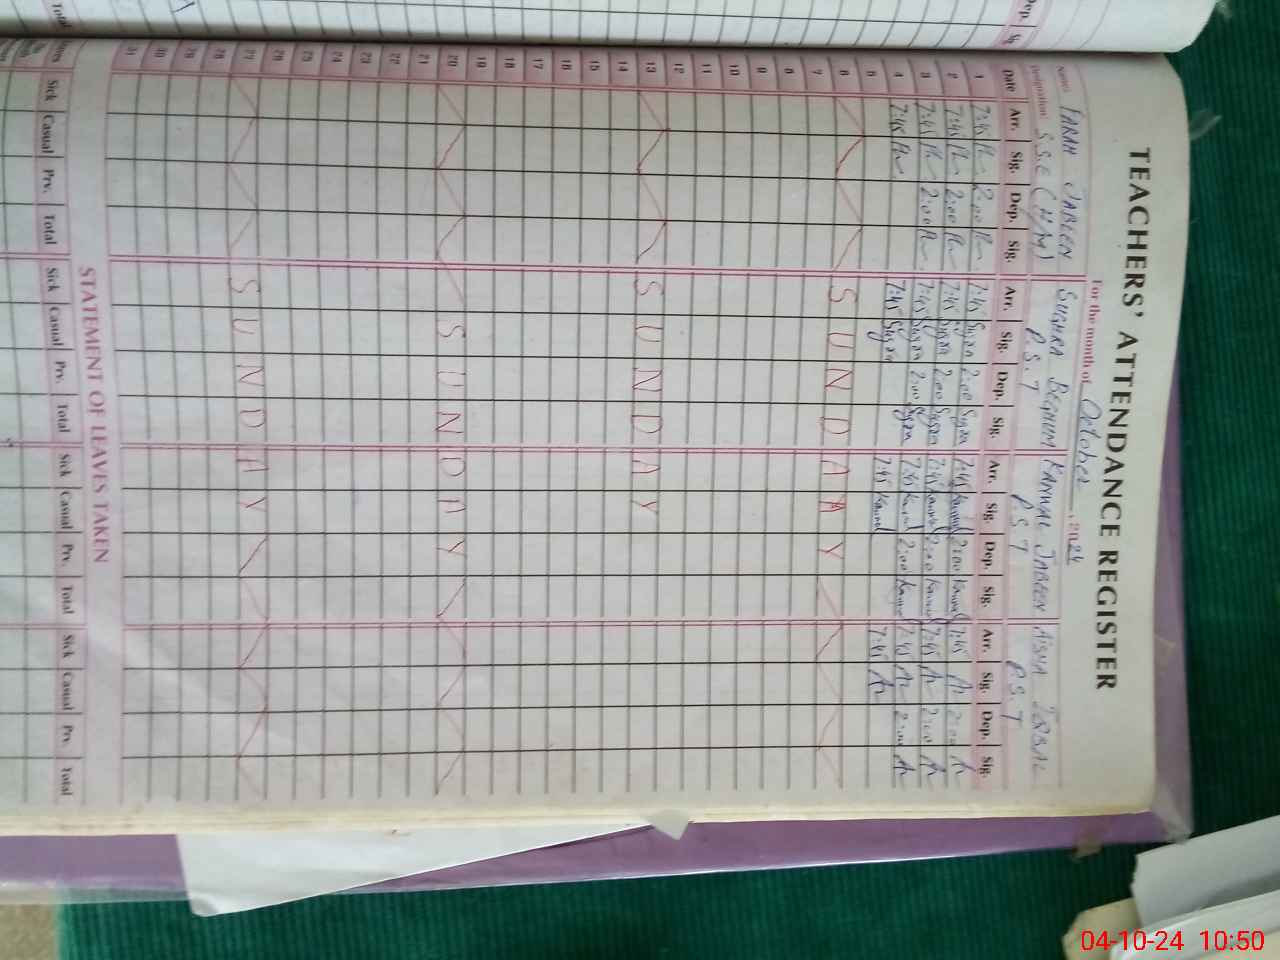 TEACHERS' ATTENDANCE REGISTER
For the month of October, 2024
Name: FARAH JABEEN SUGHRA BEGHUM KANWAL JABEEN AISHA IQBAL
Designation: S.S.E (H/M) P.S.T P.S.T P.S.T
Date Arr. Sig. Dep. Sig. Arr. Sig. Dep. Sig. Arr. Sig. Dep. Sig. Arr. Sig. Dep. Sig.
1 7:45 2:00 7:45 Sugra 2:00 Sugra 7:45 Kanwal 2:00 Kanwal 7:45 2:00
2 7:45 2:00 7:45 Sugra 2:00 Sugra 7:45 Kanwal 2:00 Kanwal 7:45 2:00
3 7:45 2:00 7:45 Sugra 2:00 Sugra 7:45 Kanwal 2:00 Kanwal 7:45 2:00
4 7:45 7:45 Sugra 7:45 Kanwal 7:45
5
6 SUNDAY
7
8
9
10
11
12
13 SUNDAY
14
15
16
17
18
19
20 SUNDAY
21
22
23
24
25
26
27 SUNDAY
28
29
30
31
STATEMENT OF LEAVES TAKEN
Sick Casual Prv. Total Sick Casual Prv. Total Sick Casual Prv. Total Sick Casual Prv. Total
Total
Dep.
04-10-24 10:50